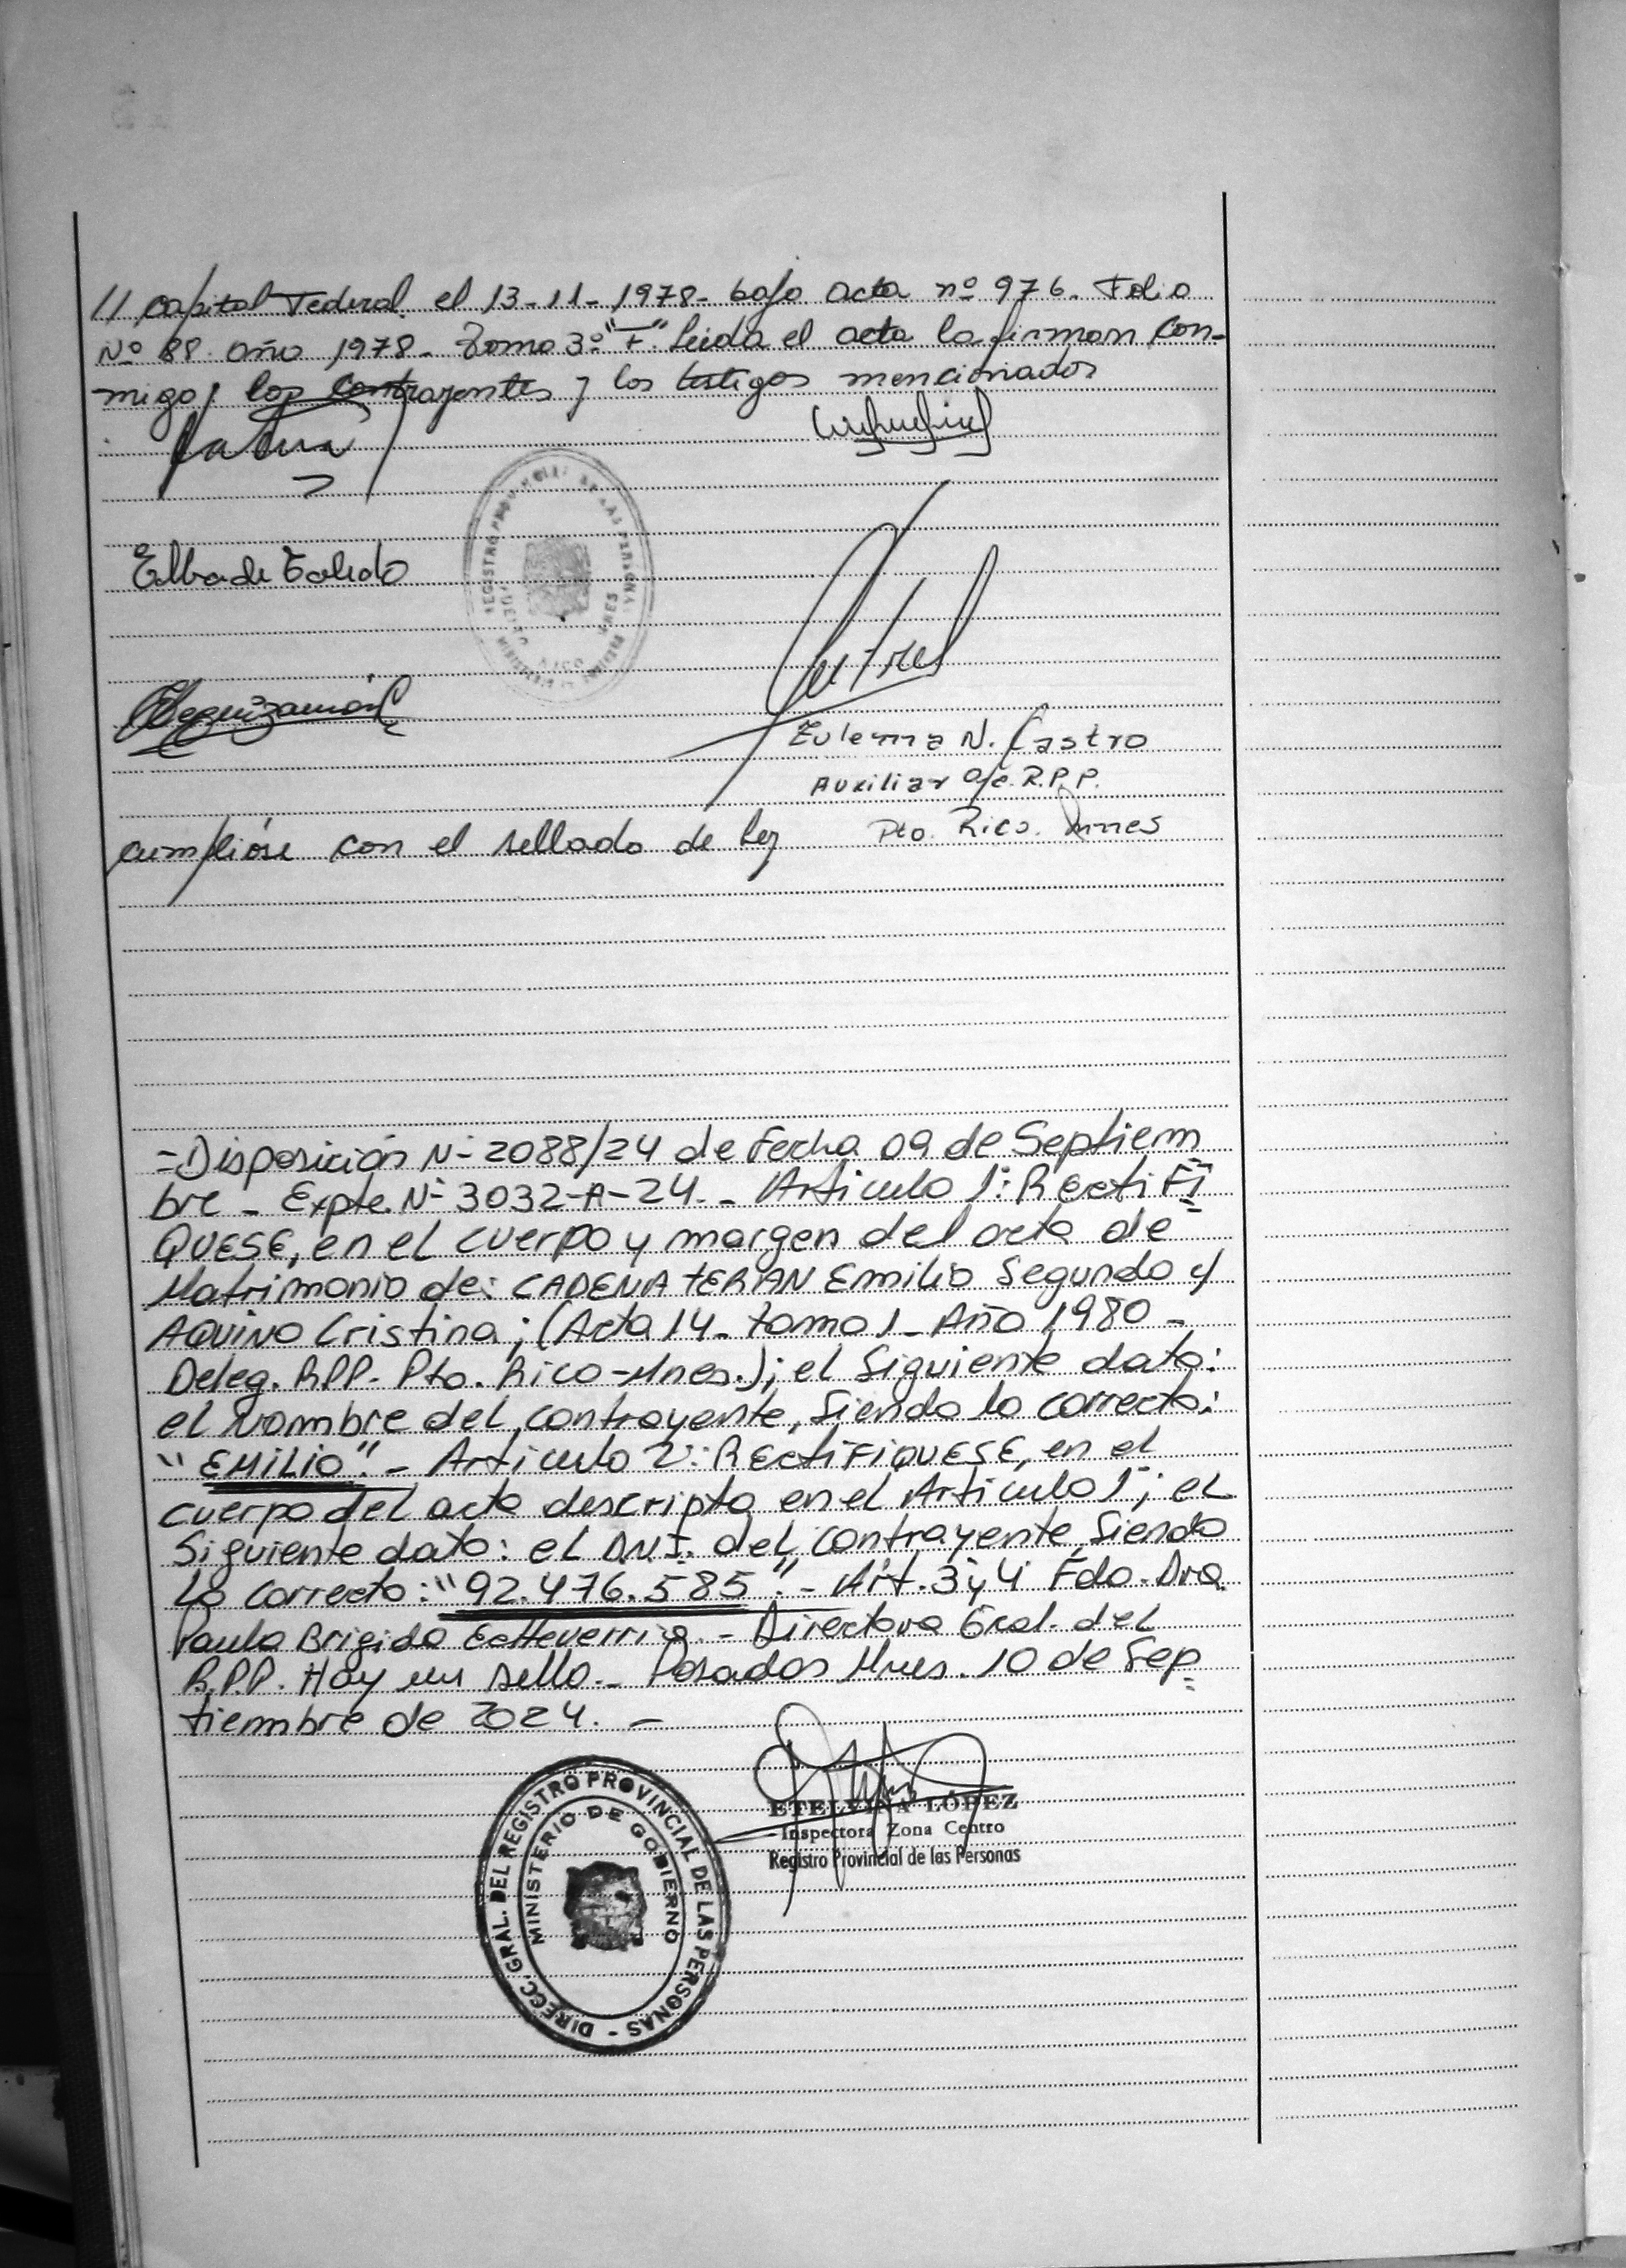 // Capital Federal. el 13-11-1978- bajo acta nº 976. Folio
Nº 88. año 1978- Tomo 3º "F". Leida el acta la firman con-
migo, los contrayentes y los testigos mencionados
Elba de Toledo
Zulema N. Castro
Auxiliar a/c. R.P.P.
cumplióse con el sellado de Ley
Pto. Rico. Mnes
=Disposición Nº 2088/24 de Fecha 09 de Septiem
bre - Expte. Nº 3032-A-24. - Artículo 1º: RectiFi=
QUESE, en el cuerpo y margen del acta de
Matrimonio de: CADENA TERAN Emilio Segundo y
AQUINO Cristina; (Acta 14- tomo 1- Año 1980 -
Deleg. RPP. Pto. Rico-Mnes.); el Siguiente dato:
el Nombre del contrayente, Siendo lo correcto:
"EMILIO". - Articulo 2º: RectiFIQUESE, en el
cuerpo del acta descripta en el Articulo 1º; el
Siguiente dato: el D.N.I. del contrayente, Siendo
lo correcto: "92.476.585". - Art. 3º y 4º Fdo. Dra.
Paula Brigida Echeverria - Directora Gral. del
R.P.P. Hay un sello. - Posadas Mnes. 10 de Sep=
tiembre de 2024. -
ETELVINA LÓPEZ
Inspectora Zona Centro
Registro Provincial de las Personas
DIRECC. GRAL. DEL REGISTRO PROVINCIAL DE LAS PERSONAS -
MINISTERIO DE GOBIERNO